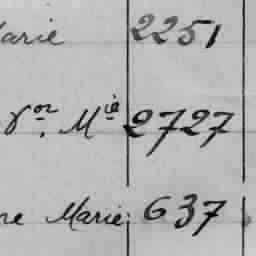 Marie 2251
Vor. Mie 2727
re Marie 637